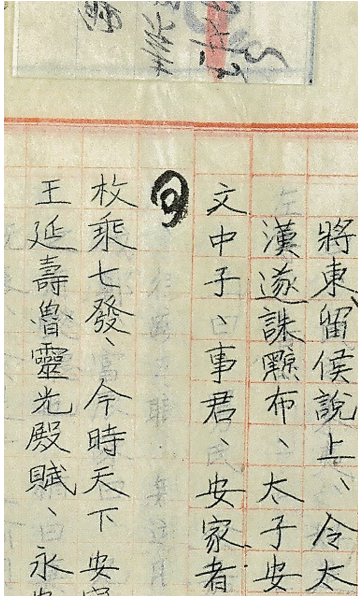 將東、留侯說上、令太
漢遂誅黥布、太子安
文中子、事君、安家者
枚乘七發、今時天下安
王延壽魯靈光殿賦、永安